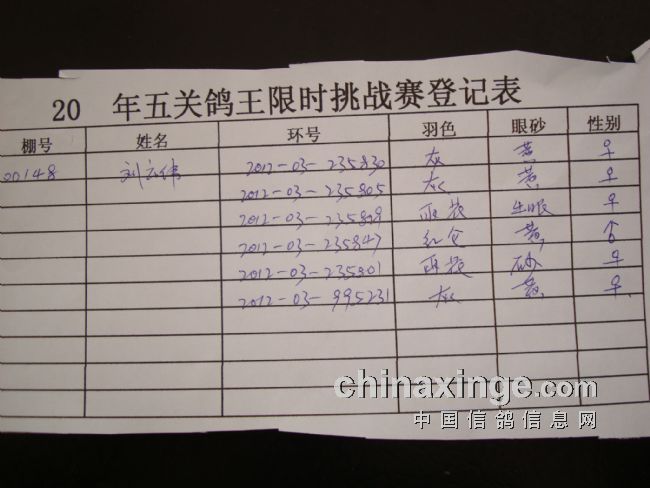 20 年五关鸽王限时挑战赛登记表
棚号 姓名 环号 羽色 眼砂 性别
00148 刘云伟 2012-03-235830 灰 黄 ♀
2012-03-235805 灰 黄 ♀
2012-03-235809 雨花 牛眼 ♀
2012-03-235847 红仑 黄 ♂
2012-03-235801 雨花 砂 ♀
2012-03-995231 灰 黄 ♀
chinaxinge.com
中国信鸽信息网